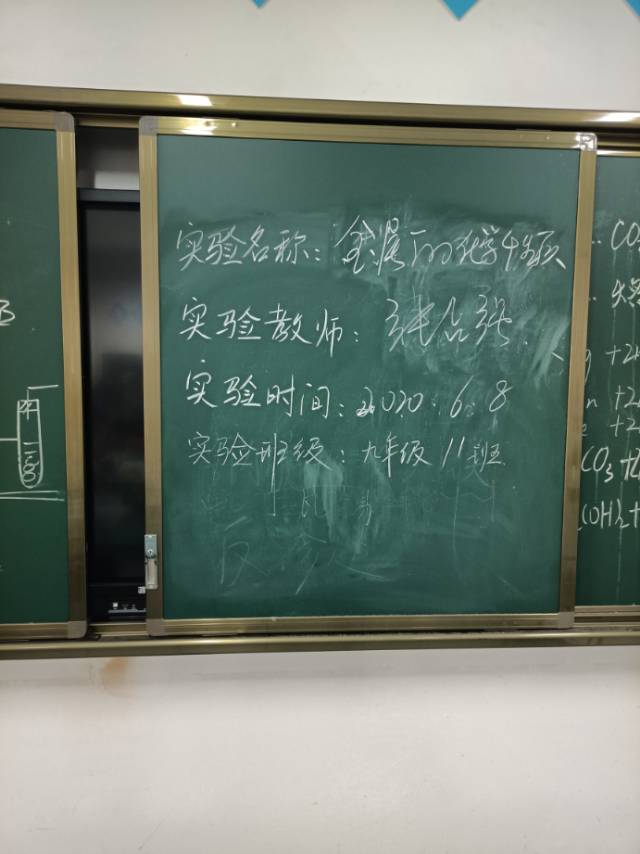 实验名称：金属的化学性质
实验教师：张品强
实验时间：2020.6.8
实验班级：九年级11班
CO
+2
+2
+2
CO₃ +
(OH)₂ +